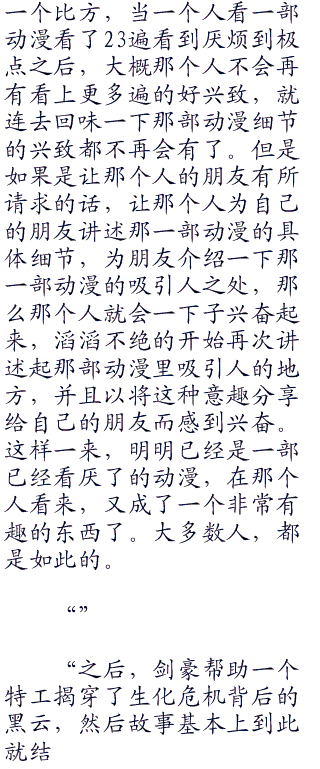 一个比方，当一个人看一部
动漫看了23遍看到厌烦到极
点之后，大概那个人不会再
有看上更多遍的好兴致，就
连去回味一下那部动漫细节
的兴致都不再会有了。但是
如果是让那个人的朋友有所
请求的话，让那个人为自己
的朋友讲述那一部动漫的具
体细节，为朋友介绍一下那
一部动漫的吸引人之处，那
么那个人就会一下子兴奋起
来，滔滔不绝的开始再次讲
述起那部动漫里吸引人的地
方，并且以将这种意趣分享
给自己的朋友而感到兴奋。
这样一来，明明已经是一部
已经看厌了的动漫，在那个
人看来，又成了一个非常有
趣的东西了。大多数人，都
是如此的。
“”
“之后，剑豪帮助一个
特工揭穿了生化危机背后的
黑云，然后故事基本上到此
就结